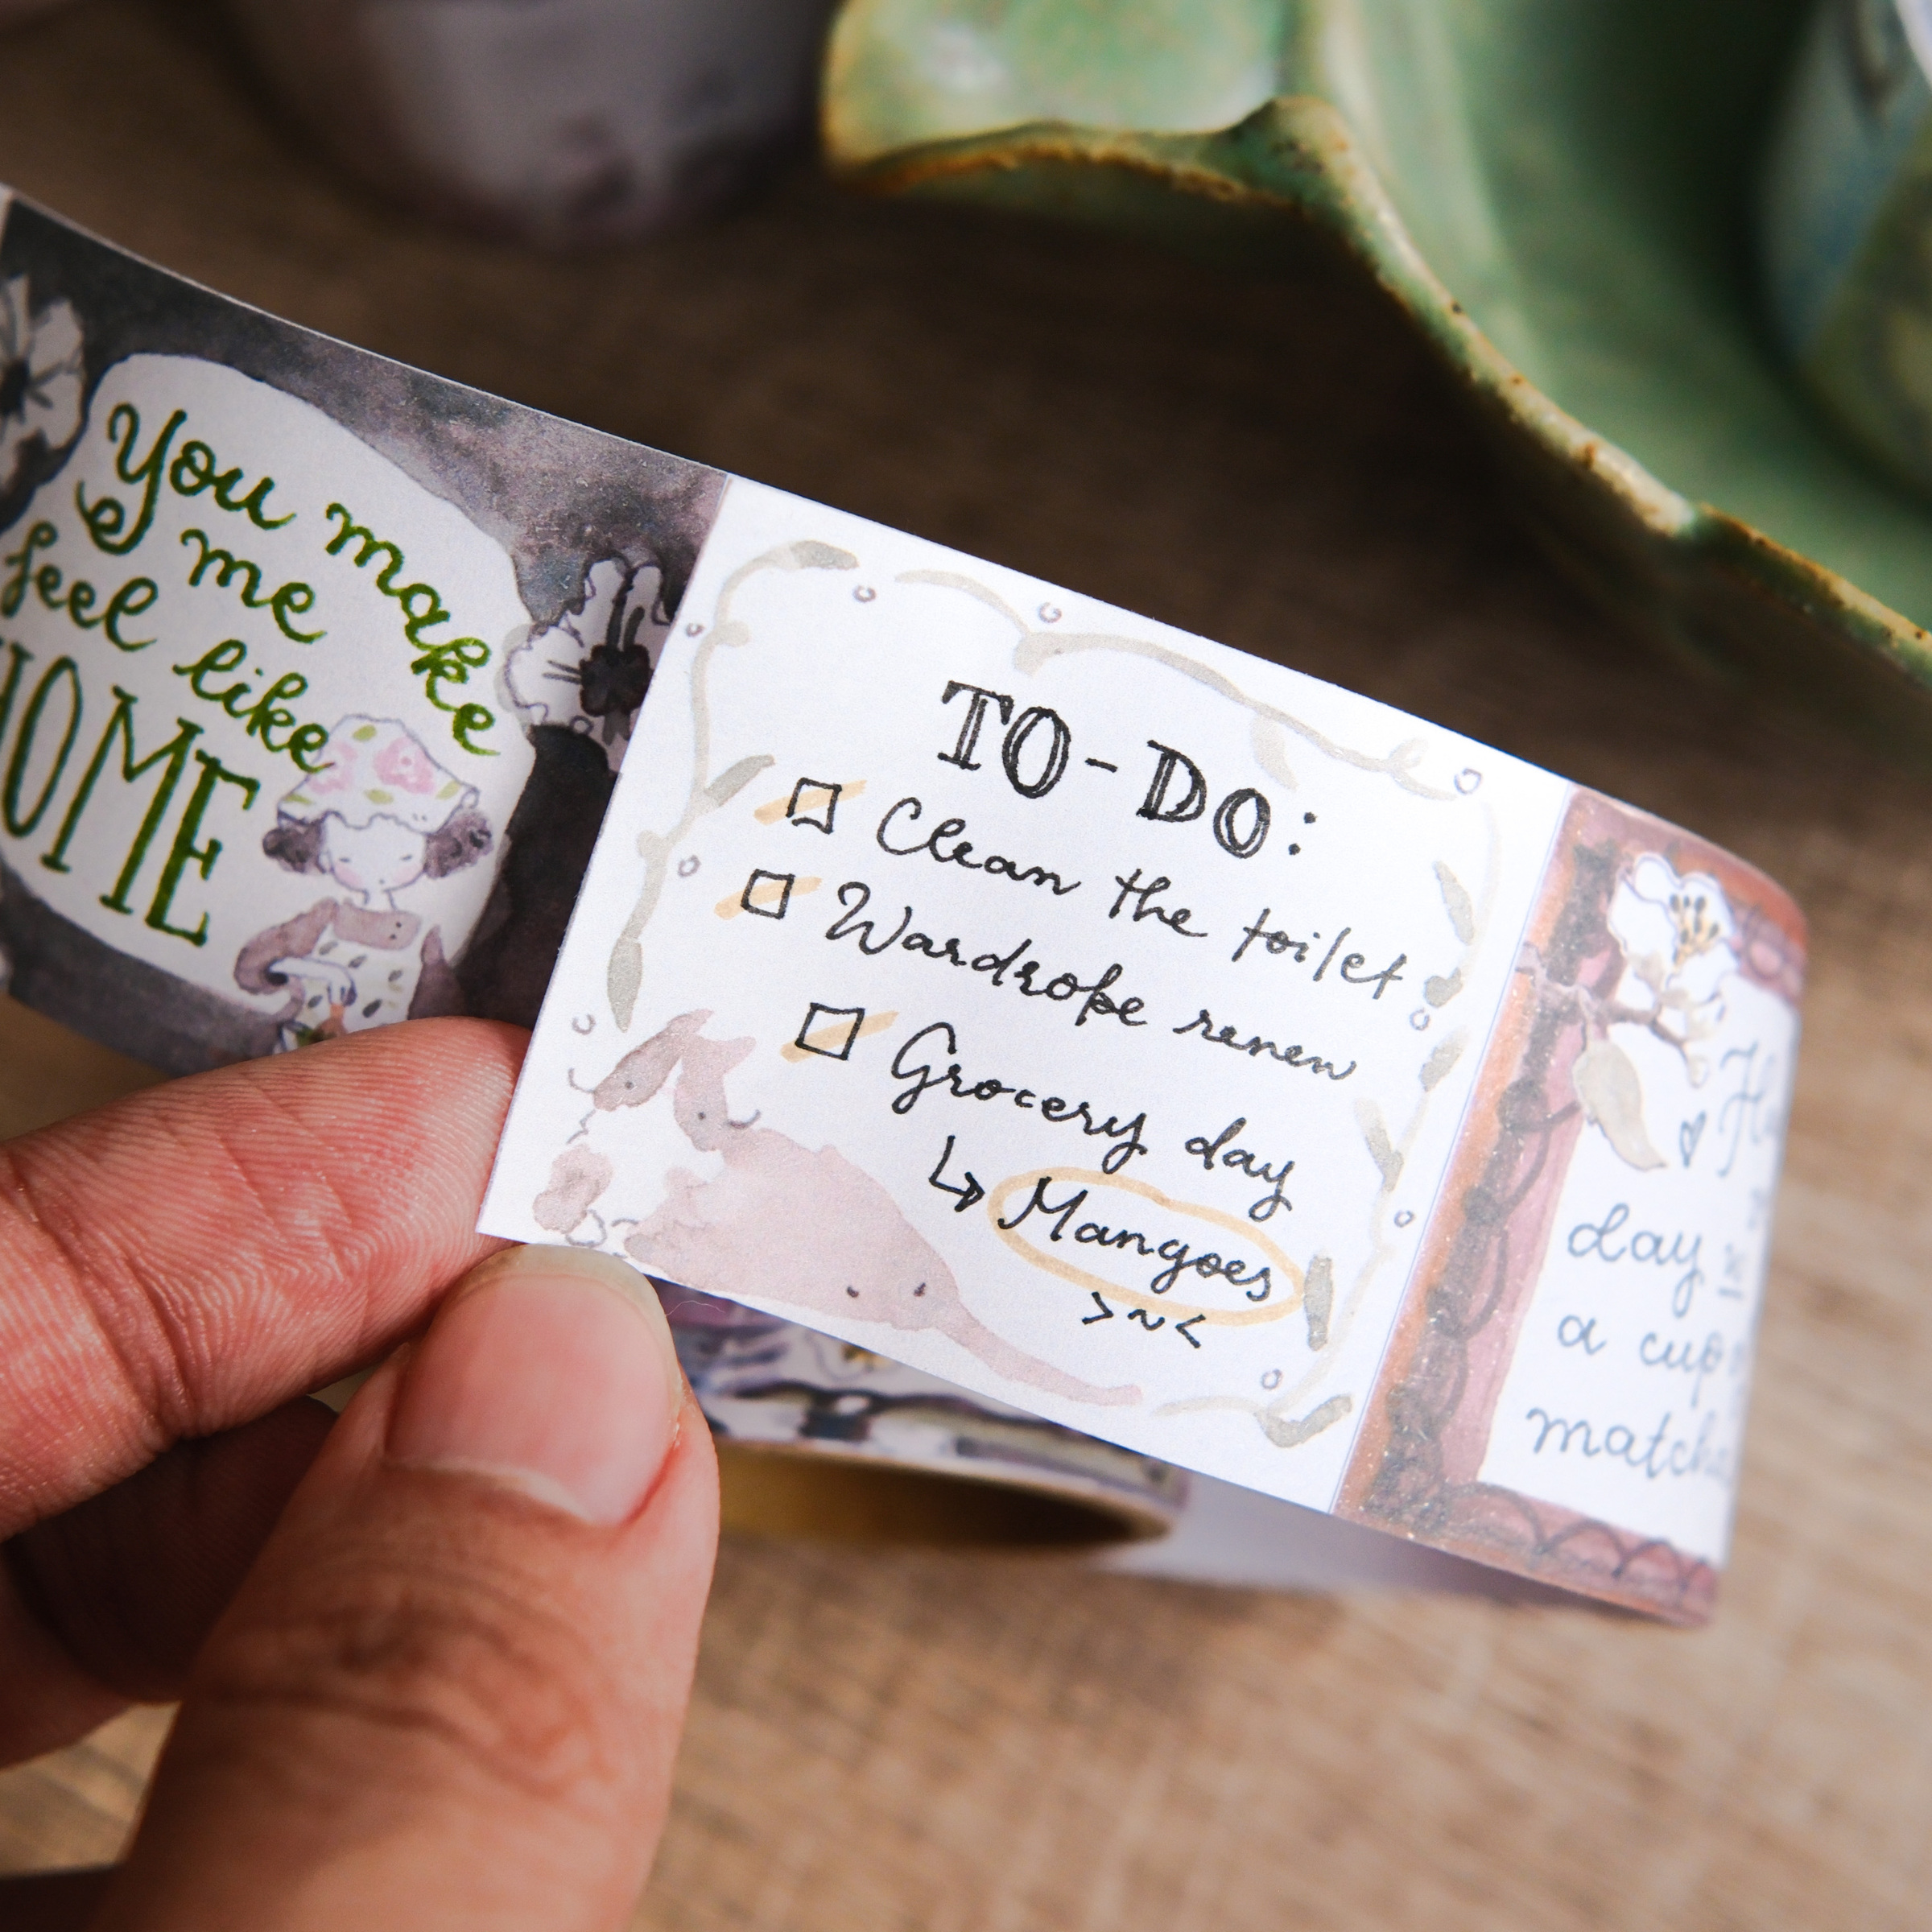 You make
me
feel like
HOME
TO-DO:
Clean the toilet
Wardrobe renew
Grocery day
↳ Mangoes
>~<
day
a cup
matcha